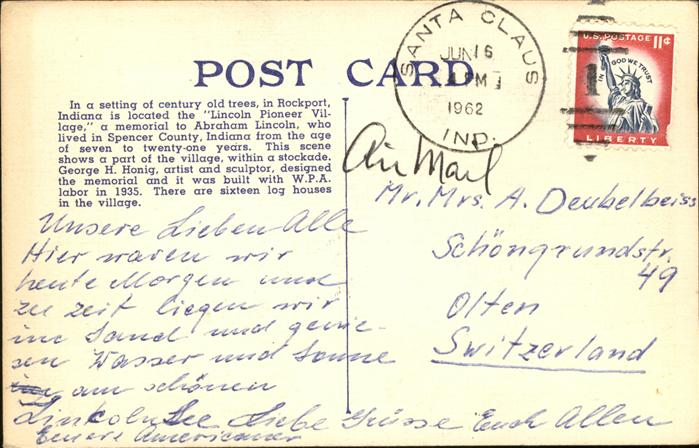 POST CARD
In a setting of century old trees, in Rockport,
Indiana is located the "Lincoln Pioneer Vil-
lage," a memorial to Abraham Lincoln, who
lived in Spencer County, Indiana from the age
of seven to twenty-one years. This scene
shows a part of the village, within a stockade.
George H. Honig, artist and sculptor, designed
the memorial and it was built with W.P.A.
labor in 1935. There are sixteen log houses
in the village.
SANTA CLAUS
JUN 16
PM
1962
IND.
U.S. POSTAGE 11¢
IN GOD WE TRUST
LIBERTY
Air Mail
Mr. Mrs. A. Deubelbeiss
Schöngrundstr.
49
Olten
Switzerland
Unsere Lieben Alle
Hier waren wir
heute Morgen und
zu zeit liegen wir
im Sand und genie-
sen Wasser und Sonne
am schönen
Lincoln See Liebe Grüsse Euch Allen
Eure Americaner